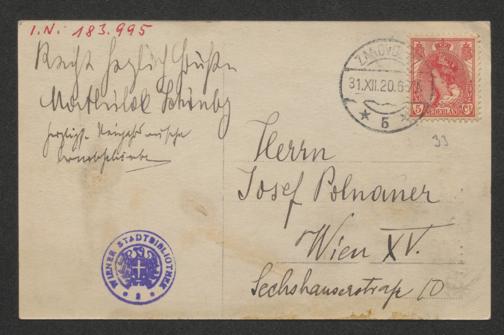 I.N: 183.995
Recht herzliche Grüße
Mathilde Schönberg
herzlichste Neujahrswünsche
ZANDVO
31.XII.20.6-7
* 5 *
5 CT
NEDERLAND
33
Herrn
Josef Polnauer
Wien XV.
Sechshauserstraße 10
WIENER STADTBIBLIOTHEK